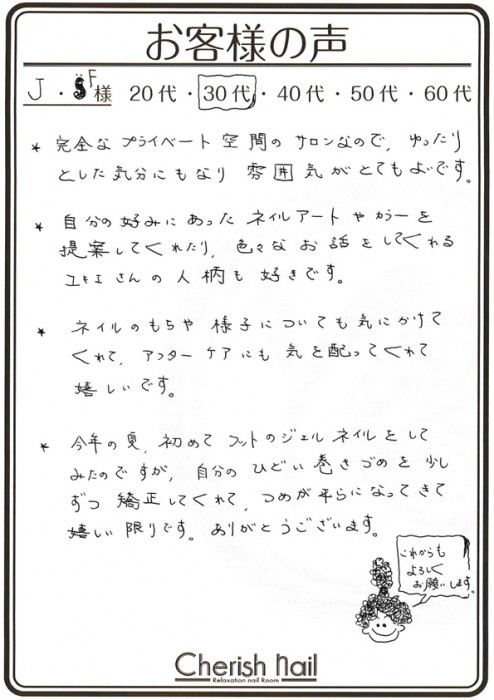 お客様の声
J・F様 20代・30代・40代・50代・60代
* 完全なプライベート空間のサロンなので、ゆったり
とした気分にもなり 雰囲気がとてもよいです。
* 自分の好みにあったネイルアートやカラーを
提案してくれたり、色々なお話をしてくれる
ユキエさんの人柄も好きです。
* ネイルのもちや様子についても気にかけて
くれて、アフターケアにも気を配ってくれて
嬉しいです。
* 今年の夏、初めてフットのジェルネイルをして
みたのですが、自分のひどい巻きづめを少し
ずつ矯正してくれて、つめが平らになってきて
嬉しい限りです。ありがとうございます。
これからも
よろしく
お願いします。
Cherish nail
Relaxation nail Room